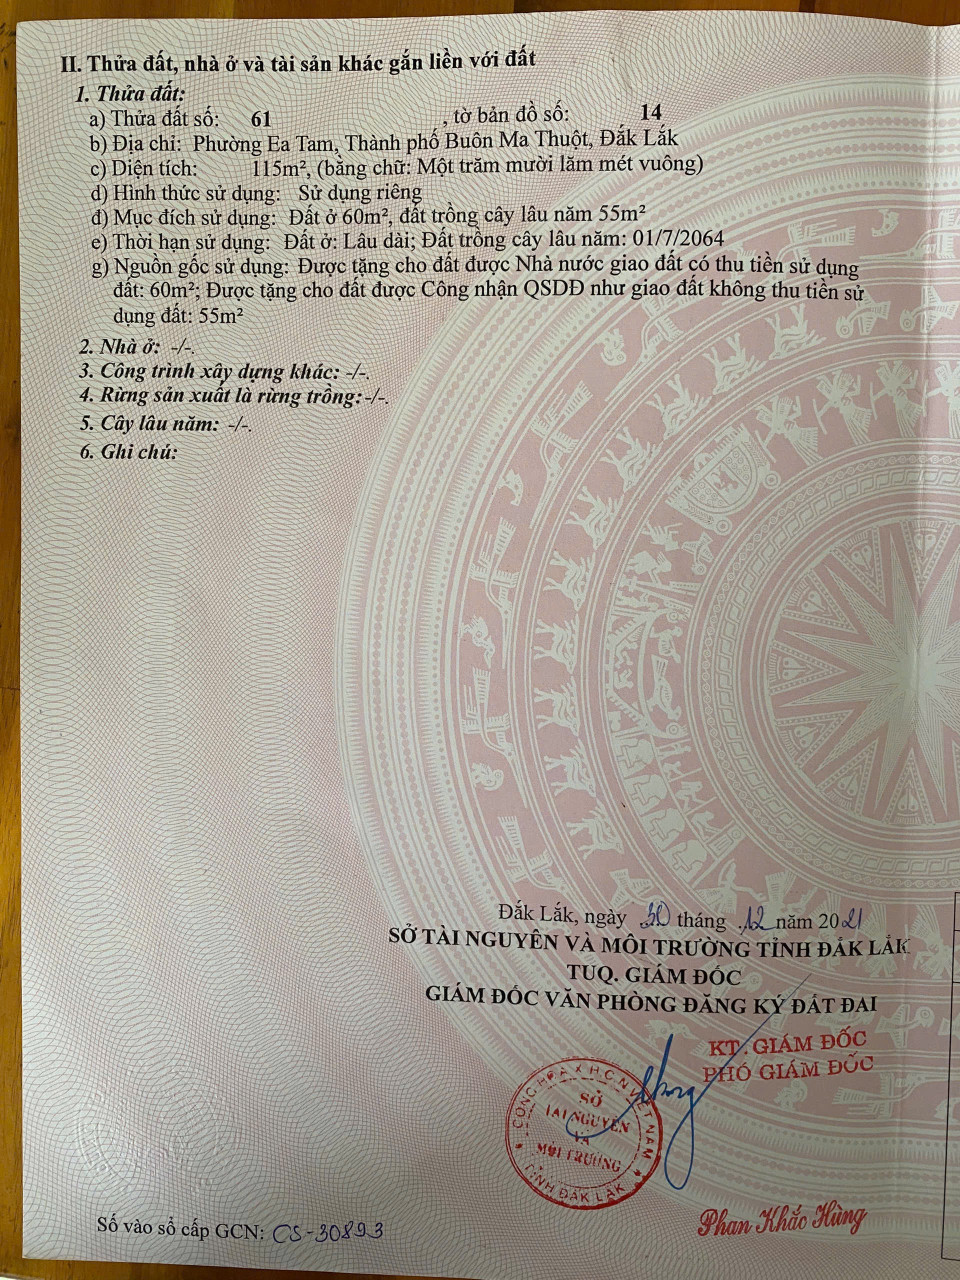 II. Thửa đất, nhà ở và tài sản khác gắn liền với đất
1. Thửa đất:
a) Thửa đất số: 61 , tờ bản đồ số: 14
b) Địa chỉ: Phường Ea Tam, Thành phố Buôn Ma Thuột, Đắk Lắk
c) Diện tích: 115m², (bằng chữ: Một trăm mười lăm mét vuông)
d) Hình thức sử dụng: Sử dụng riêng
đ) Mục đích sử dụng: Đất ở 60m², đất trồng cây lâu năm 55m²
e) Thời hạn sử dụng: Đất ở: Lâu dài; Đất trồng cây lâu năm: 01/7/2064
g) Nguồn gốc sử dụng: Được tặng cho đất được Nhà nước giao đất có thu tiền sử dụng
đất: 60m²; Được tặng cho đất được Công nhận QSDĐ như giao đất không thu tiền sử
dụng đất: 55m²
2. Nhà ở: -/-.
3. Công trình xây dựng khác: -/-.
4. Rừng sản xuất là rừng trồng:-/-.
5. Cây lâu năm: -/-.
6. Ghi chú:
Đắk Lắk, ngày 30 tháng 12 năm 2021
SỞ TÀI NGUYÊN VÀ MÔI TRƯỜNG TỈNH ĐẮK LẮK
TUQ. GIÁM ĐỐC
GIÁM ĐỐC VĂN PHÒNG ĐĂNG KÝ ĐẤT ĐAI
KT. GIÁM ĐỐC
PHÓ GIÁM ĐỐC
CỘNG HÒA X.H.C.N VIỆT NAM
SỞ
TÀI NGUYÊN
VÀ
MÔI TRƯỜNG
TỈNH ĐẮK LẮK
Phan Khắc Hùng
Số vào sổ cấp GCN: CS-30893